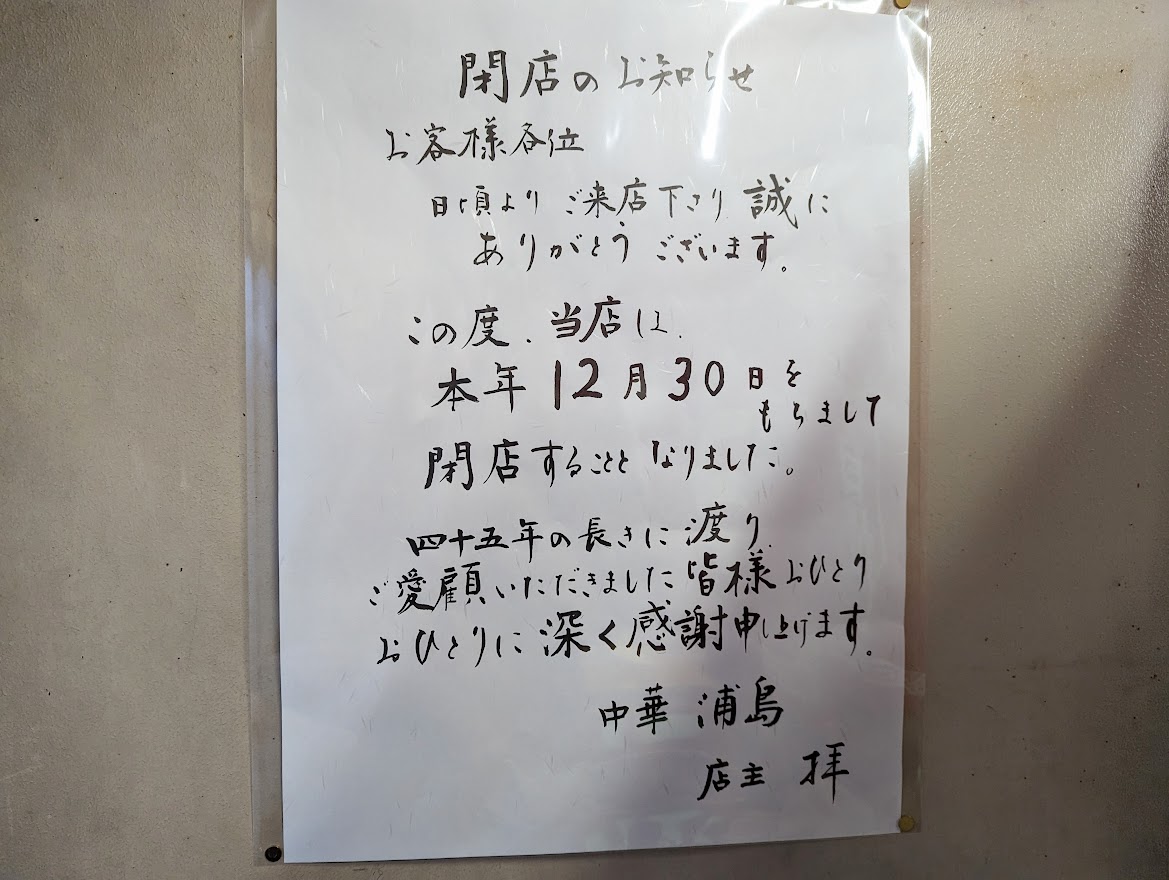 閉店のお知らせ
お客様各位
日頃よりご来店下さり誠に
ありがとうございます。
この度、当店は、
本年12月30日を
もちまして
閉店することとなりました。
四十五年の長きに渡り
ご愛顧いただきました皆様おひとり
おひとりに深く感謝申し上げます。
中華 浦島
店主 拝